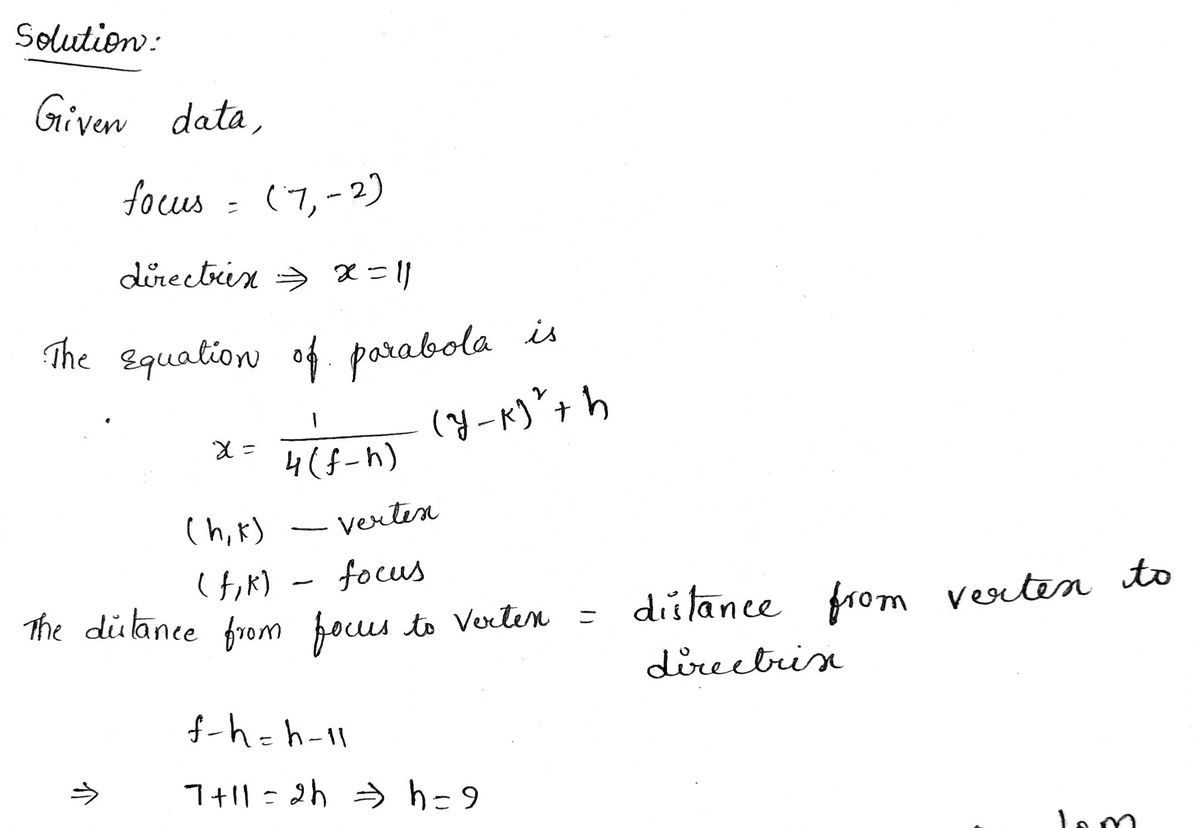 Solution:
Given data,
focus = (7,-2)
directrix ⇒ x = 11
The Equation of parabola is
x = 1/4(f-h) (y-k)² + h
(h,k) — vertex
(f,k) - focus
The distance from focus to Vertex = distance from vertex to
directrix
f-h = h-11
⇒ 7+11 = 2h ⇒ h = 9